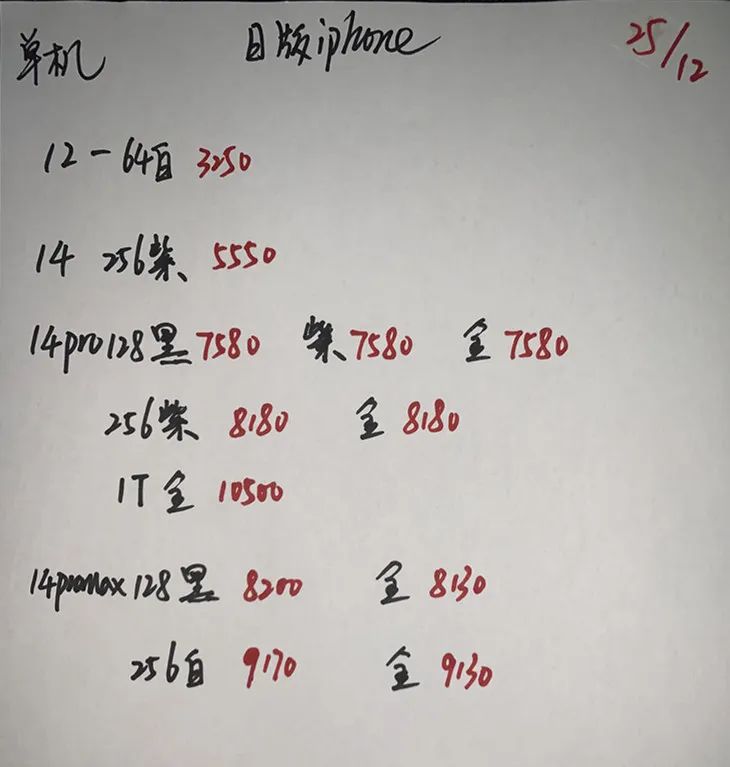 单机 日版iphone 25/12
12-64白 3250
14 256紫 5550
14pro128黑7580 紫7580 金7580
256紫 8180 金8180
1T金 10500
14promax128黑 8200 金8130
256白 9170 金9130